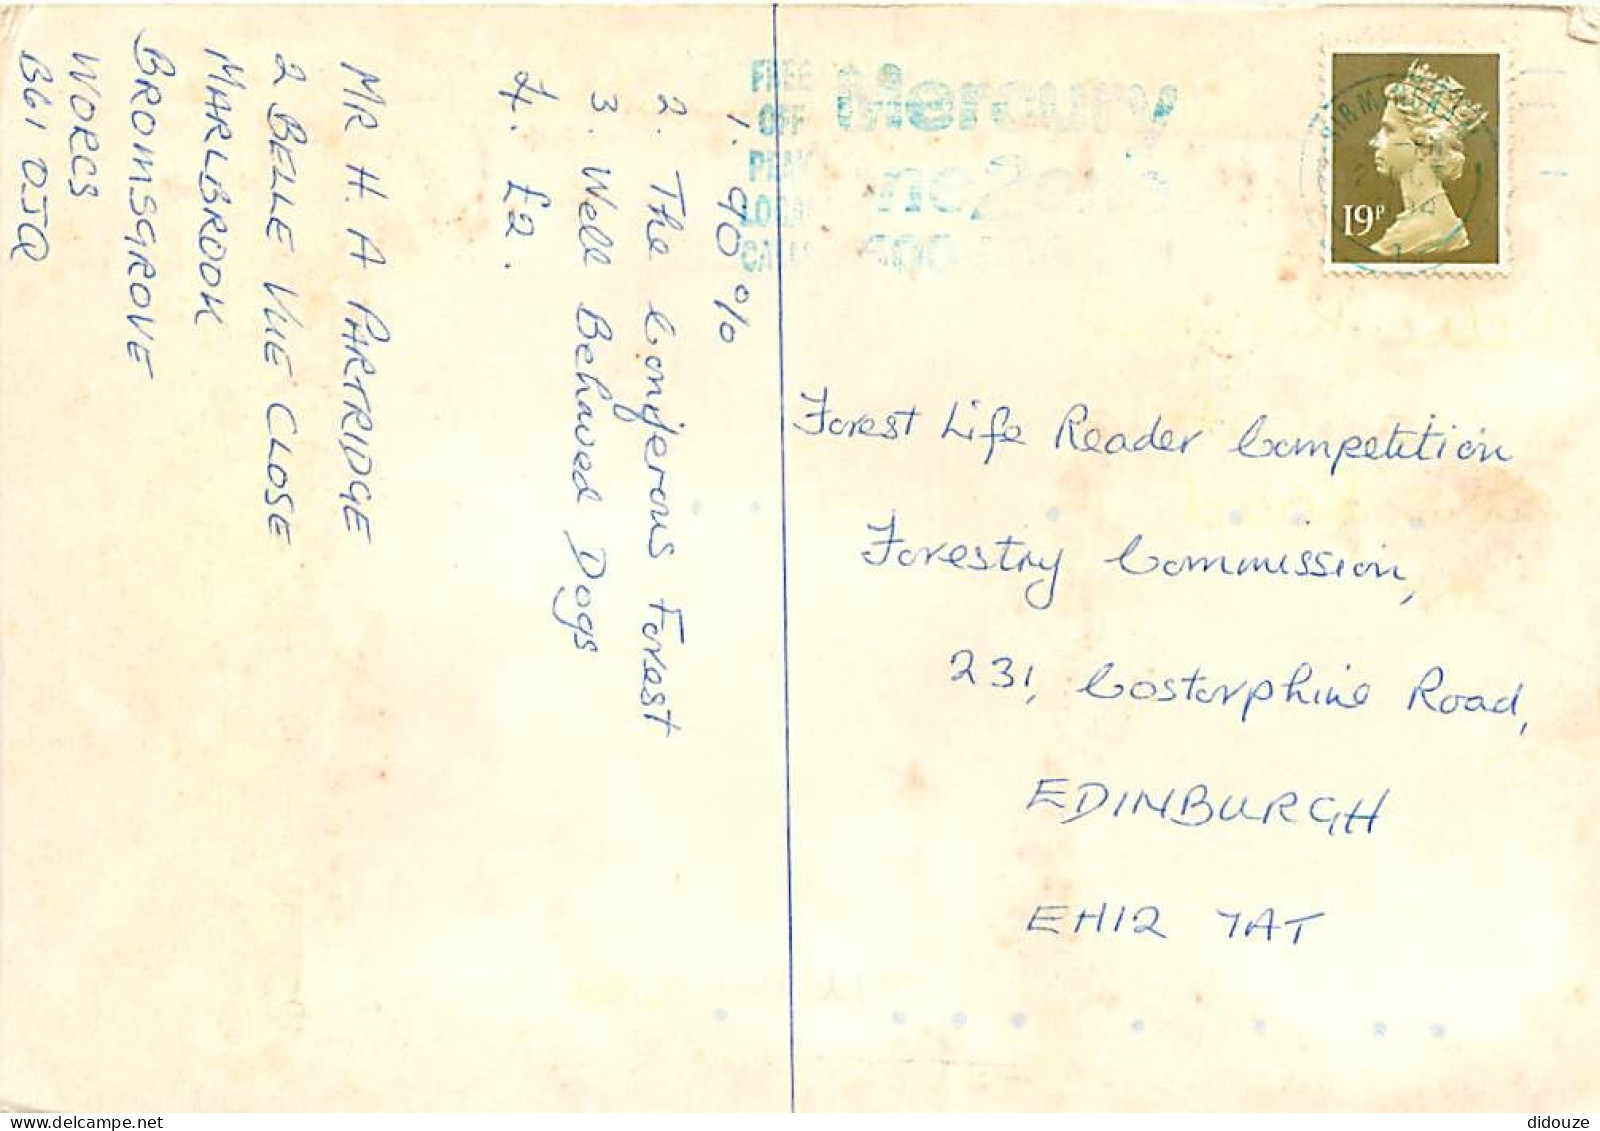 1. 90%
2. The Coniferous Forest
3. Well Behaved Dogs
4. £2.
MR H. A PARTRIDGE
2 BELLE VUE CLOSE
MARLBROOK
BROMSGROVE
WORCS
B61 0JQ
FREE
OFF
PEAK
LOCAL
CALLS
Mercury
one2one
19P
Forest Life Reader Competition
Forestry Commission,
231, Costorphine Road,
EDINBURGH
EH12 7AT
didouze